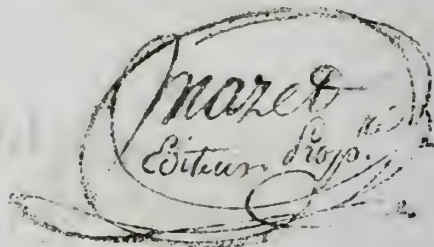 Mazet
Editeur Prop.